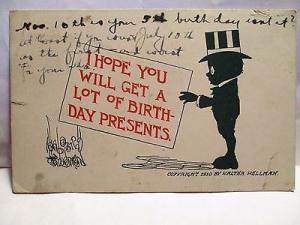 Nov. 10th is your 5th birthday isn't it?
at least if you
July 10th
as the
I HOPE YOU
WILL GET A
LOT OF BIRTH-
DAY PRESENTS.
COPYRIGHT 1910 BY WALTER WELLMAN.